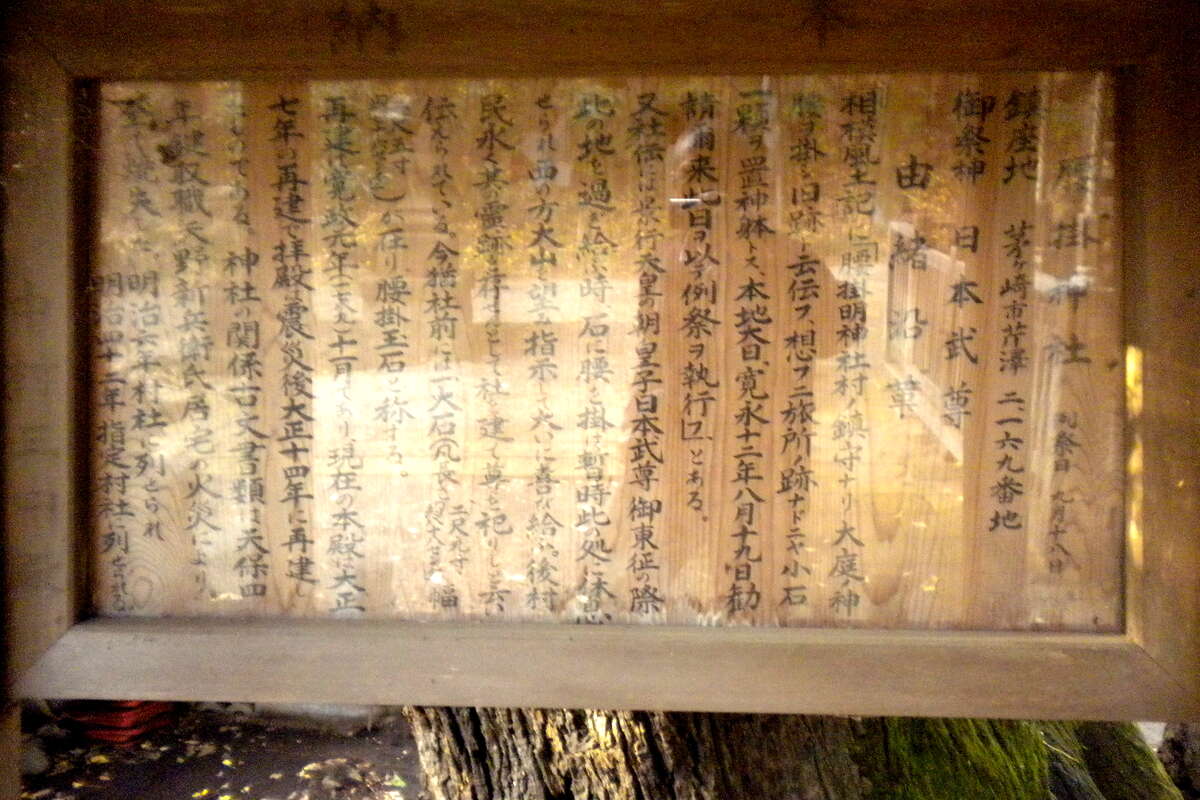 奉
納
腰掛神社 例祭日 九月十八日
鎮座地 茅ヶ崎市芹澤 二、一六九番地
御祭神 日本武尊
由緒沿革
相模風土記に「腰掛明神社村ノ鎮守ナリ大庭ノ神
腰ヲ掛シ旧跡ト云伝フ、想フニ旅所跡ナドニヤ小石
一顆ヲ置神躰トス、本地大日、寛永十二年八月十九日勧
請爾来此日ヲ以テ例祭ヲ執行ス」とある。
又社伝には景行天皇の朝皇子日本武尊御東征の際
此の地を過ぎ給ふ時石に腰を掛け暫時此の処に休息
せられ西の方大山を望み指示して大いに喜び給ふ後村
民永く其の霊跡を存せんとして社を建て尊を祀りしと云い
伝えられている。今猶社前には一大石(凡長さ 二尺九寸 幅
在り腰掛玉石と称する。
再建は寛政元年 十一月であり、現在の本殿は大正
七年の再建で拝殿は震災後大正十四年に再建し
たものである。神社の関係古文書類は天保四
年 取職天野新兵衛氏居宅の火災により
至て焼失した。明治六年村社に列せられ
明治四十二年指定村社に列せられる